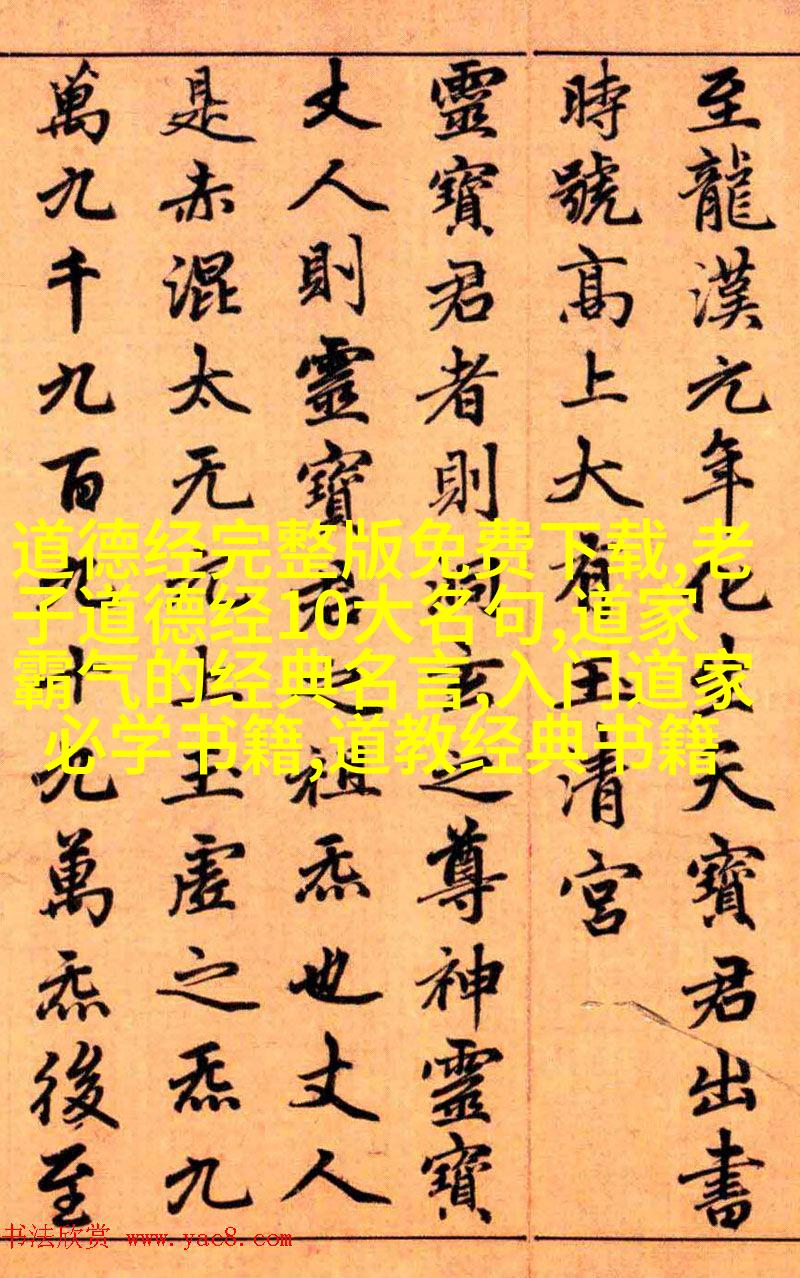 至龍漢元年化生天寶君出書
時號高上大有玉清宮
靈寶君者則洞玄之尊神靈寶
丈人則靈寶君之祖炁也丈人
是赤混太无元上玉虛之炁九
萬九千九百九十九萬炁後至
道德经完整版免费下载,老
子道德经10大名句,道家
霸气的经典名言,入门道家
必学书籍,道教经典书籍
书法欣赏 www.yac8.com